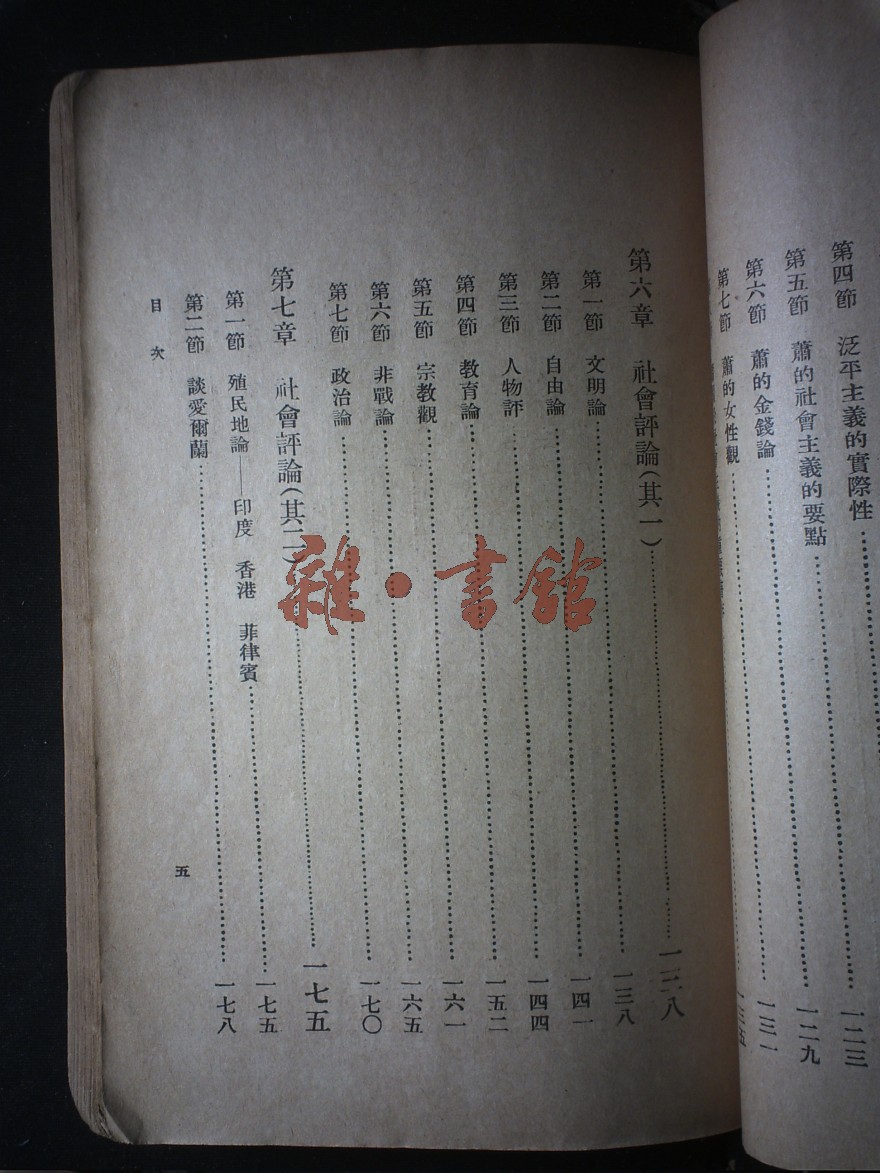 第四節　泛平主義的實際性……一二三
第五節　蕭的社會主義的要點……一二九
第六節　蕭的金錢論……一三一
第七節　蕭的女性觀……一三五
第六章　社會評論(其一)……一三八
第一節　文明論……一三八
第二節　自由論……一四一
第三節　人物評……一四四
第四節　教育論……一五二
第五節　宗教觀……一六一
第六節　非戰論……一六五
第七節　政治論……一七〇
第七章　社會評論(其二)……一七五
第一節　殖民地論——印度　香港　菲律賓……一七五
第二節　談愛爾蘭……一七八
目次
五
雜·書館